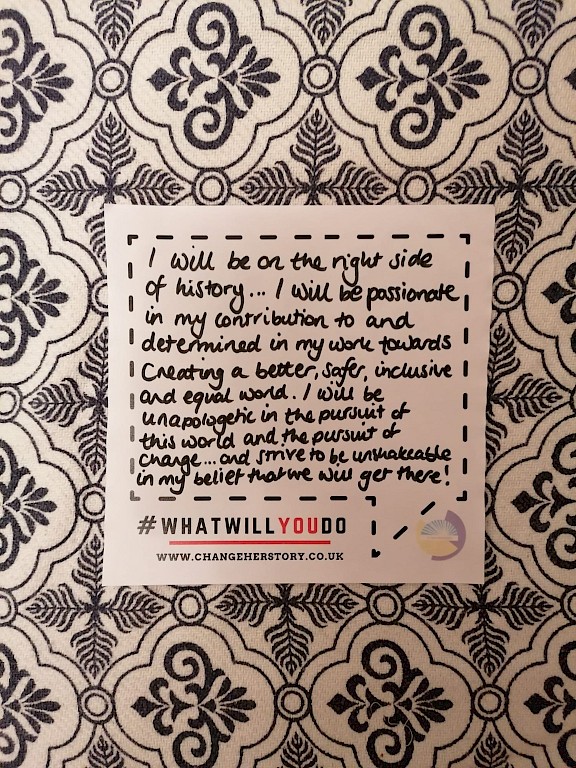 I will be on the right side
of history... I will be passionate
in my contribution to and
determined in my work towards
Creating a better, safer, inclusive
and equal world. I will be
unapologetic in the pursuit of
this world and the pursuit of
change... and strive to be unshakeable
in my belief that we will get there!
#WHATWILLYOUDO
WWW.CHANGEHERSTORY.CO.UK